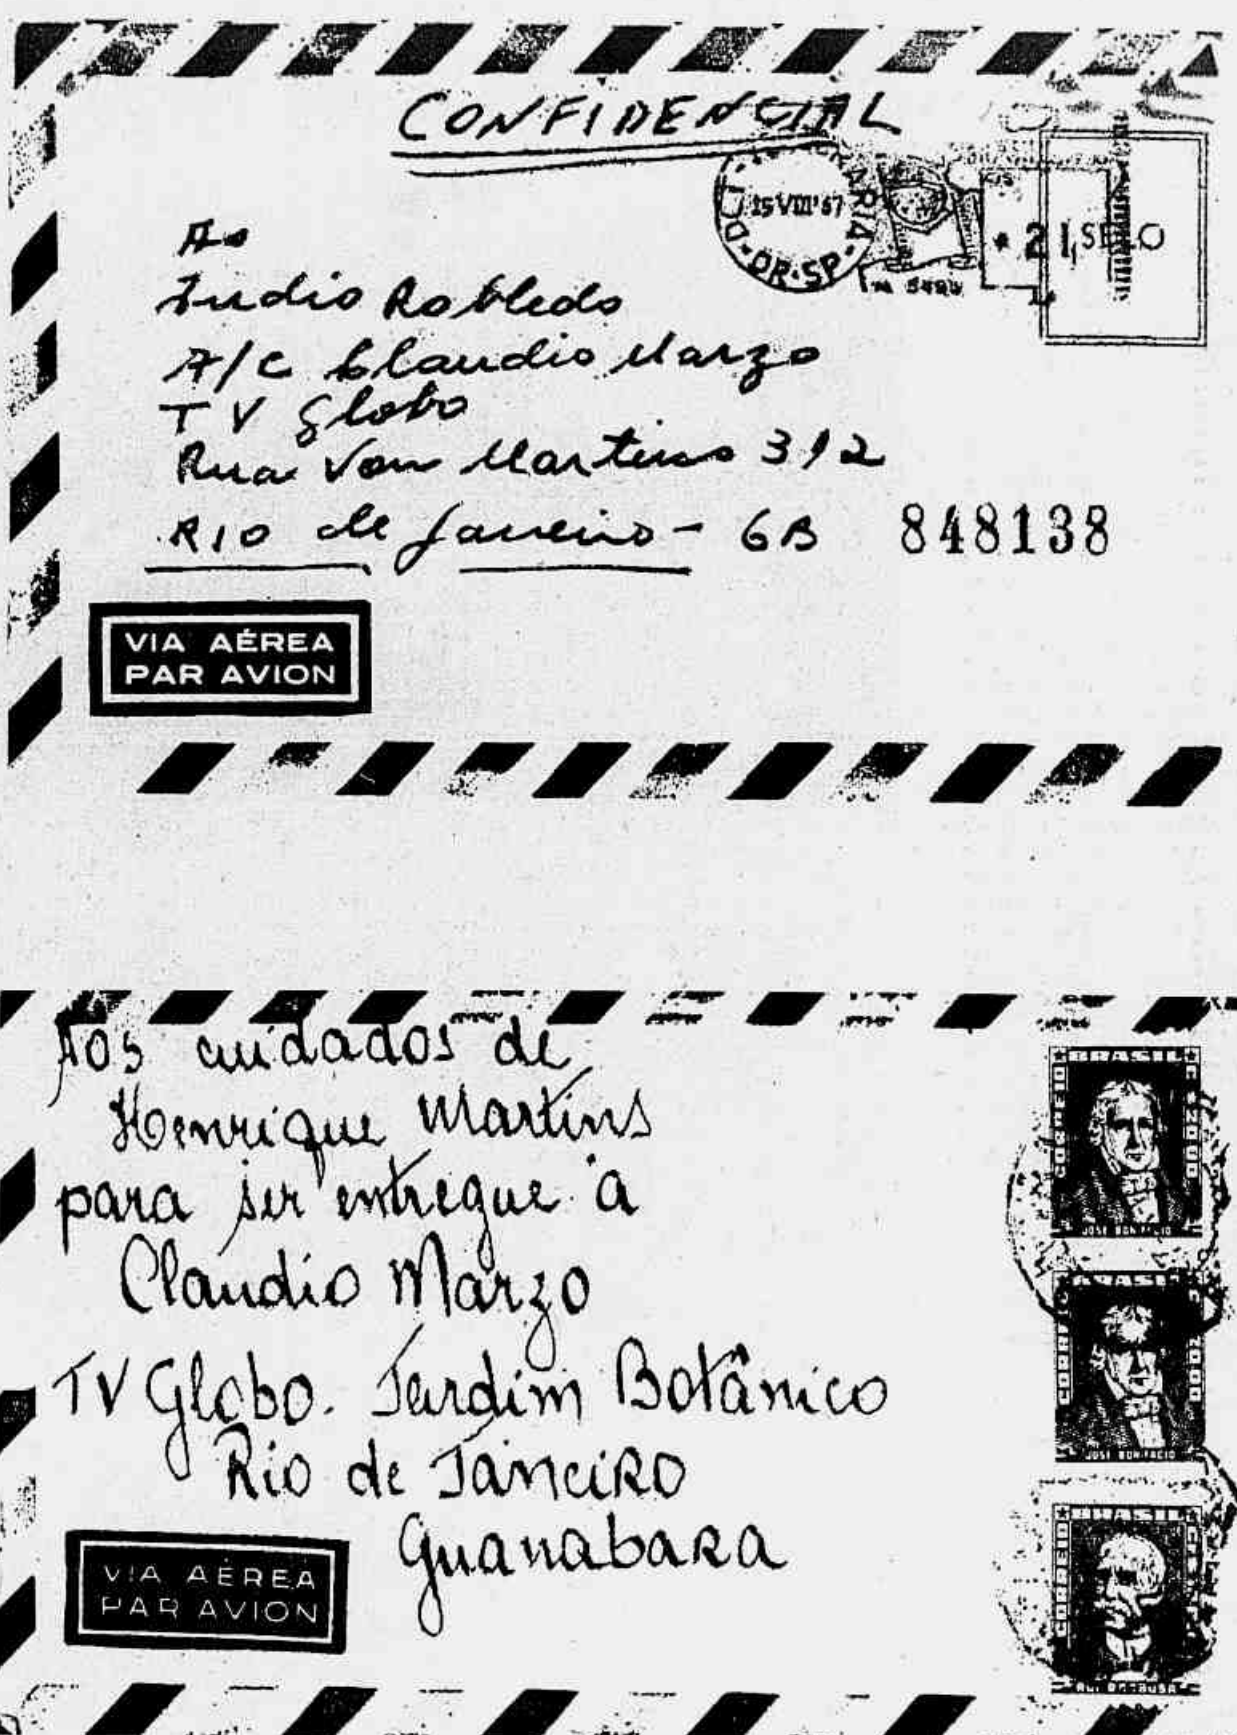 CONFIDENCIAL
15 VIII 67
DR-SP
SELO
Ao
Indio Robledo
A/C Claudio Marzo
TV Globo
Rua Von Martius 312
RIO de Janeiro - GB 848138
VIA AÉREA
PAR AVION
Aos cuidados de
Henrique Martins
para ser entregue à
Claudio Marzo
TV Globo. Jardim Botânico
Rio de Janeiro
Guanabara
VIA AÉREA
PAR AVION
BRASIL
JOSÉ BONIFACIO
BRASIL
JOSÉ BONIFACIO
BRASIL